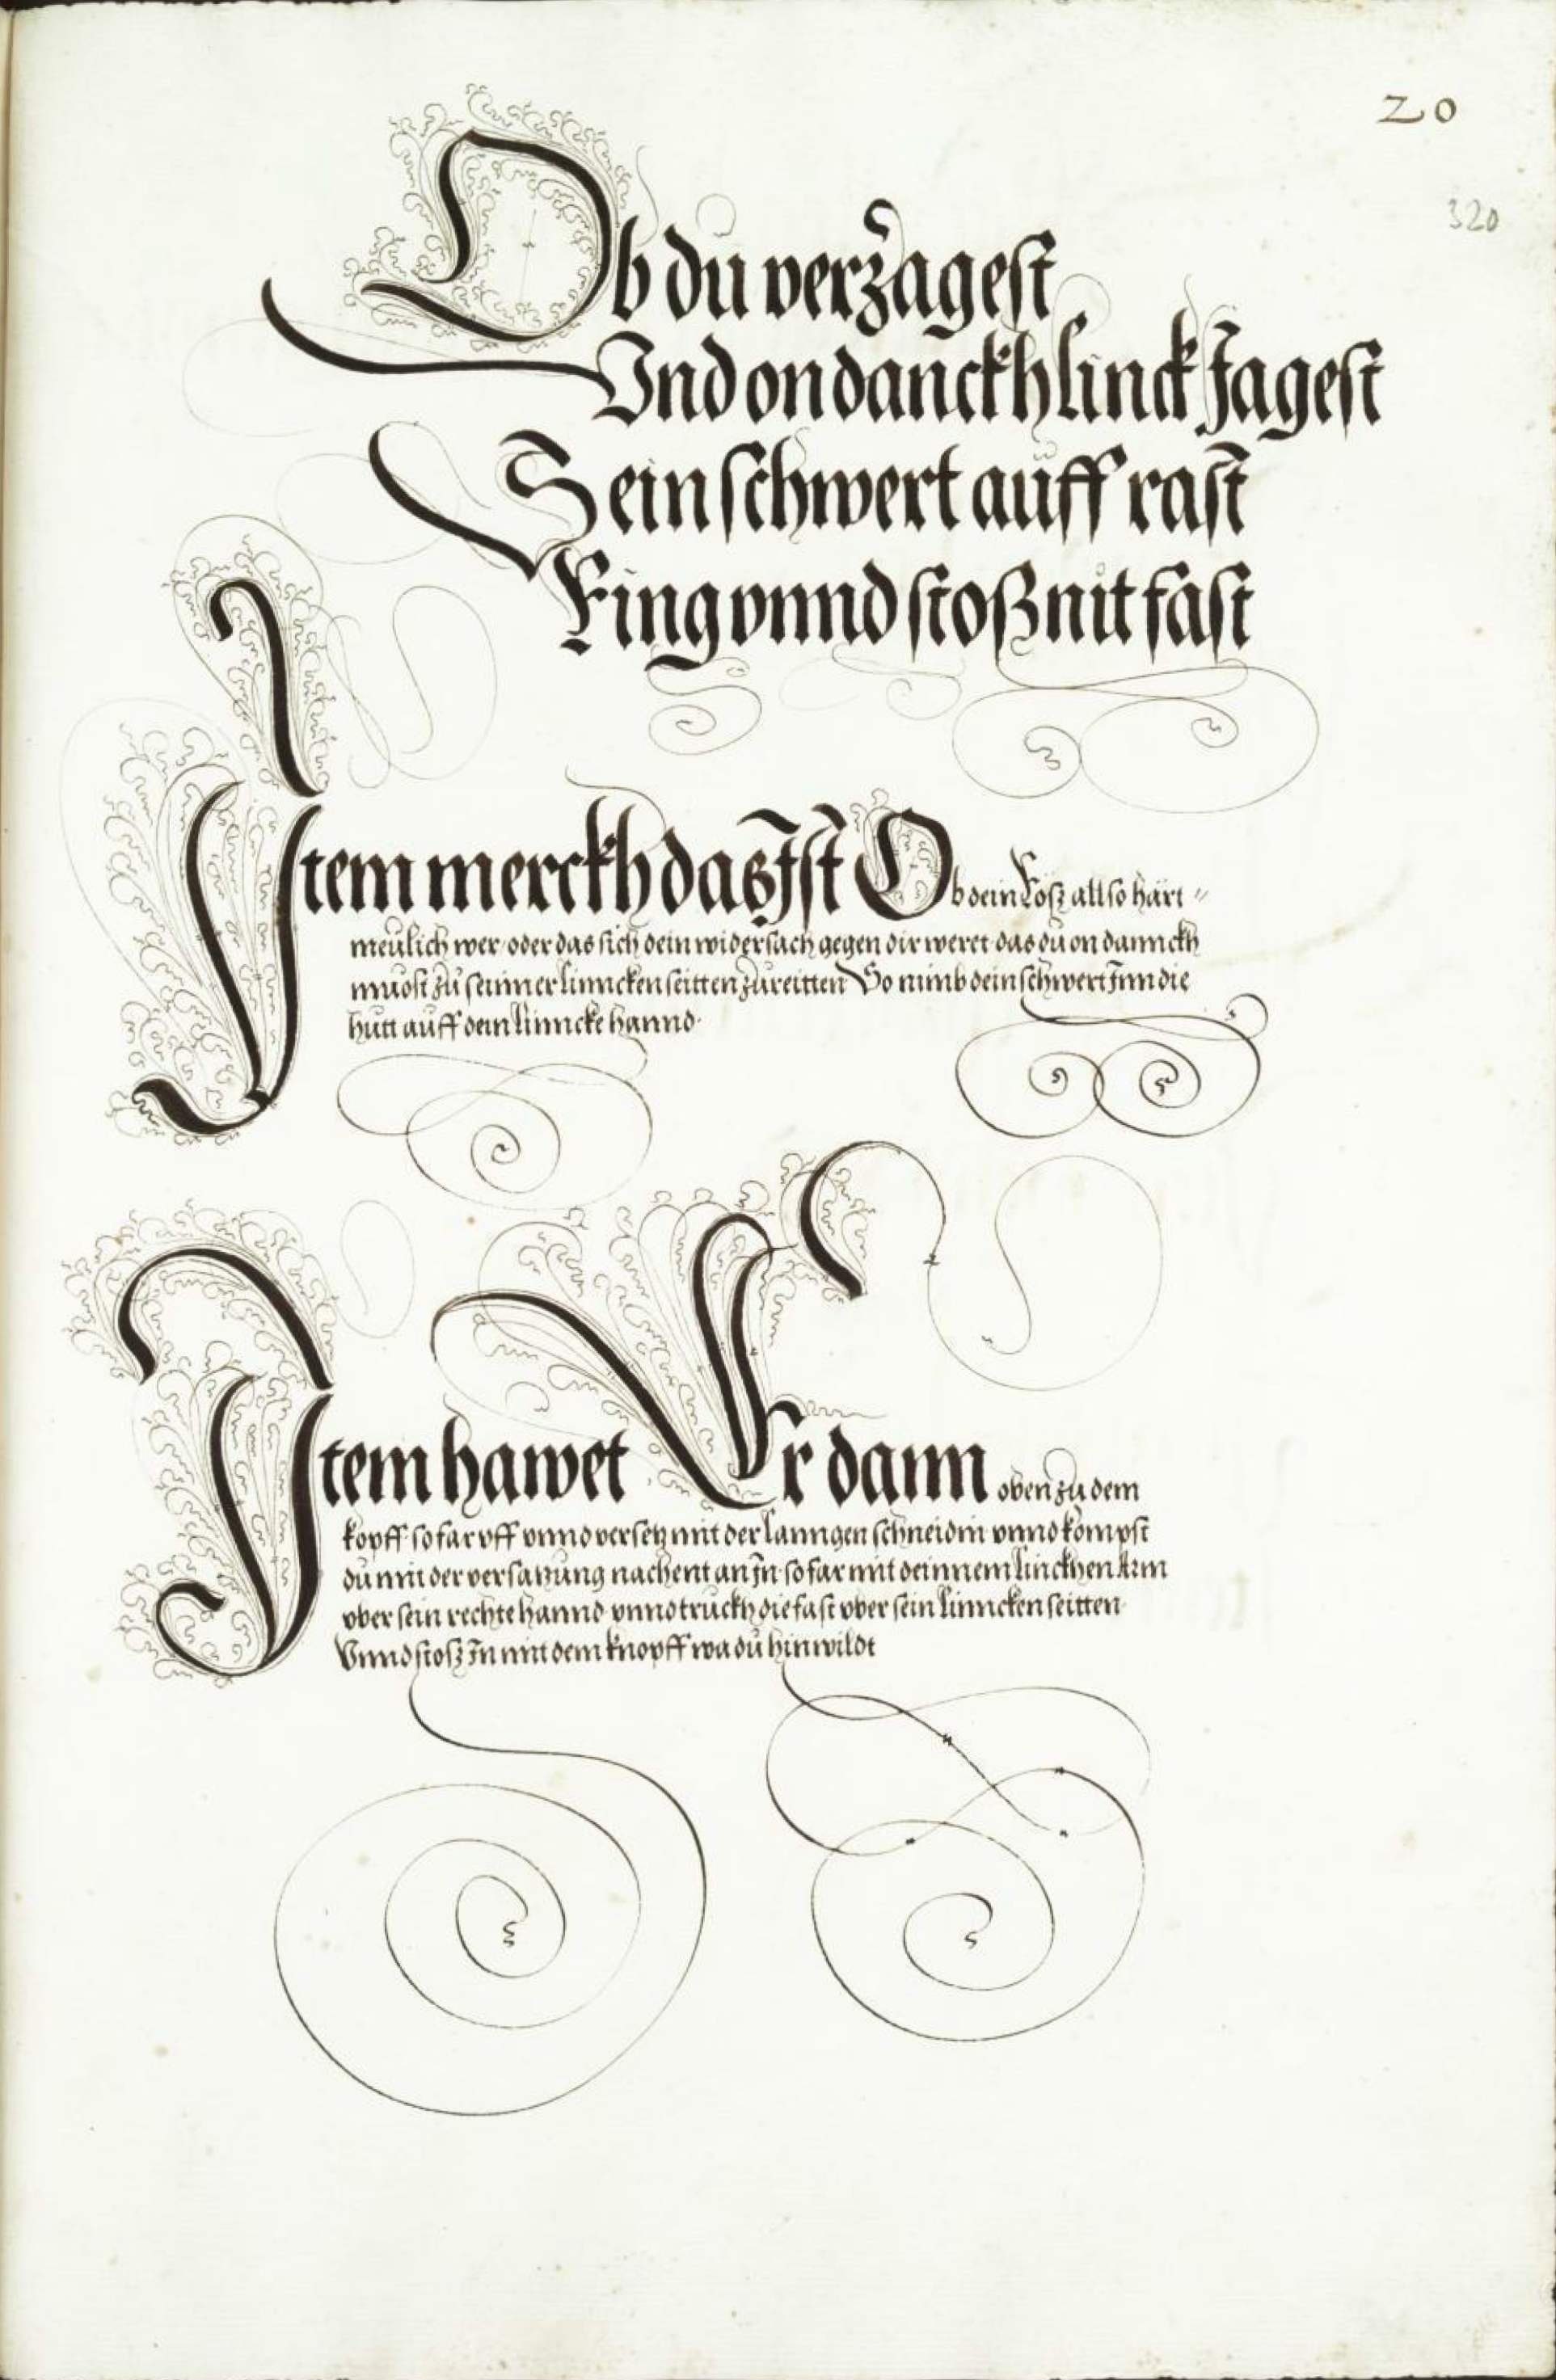 20
320
Ob du verzagest
Vnd on danckh linck Jagest
Sein schwert auff rast
Ring vnnd stoß nit fast
Item merckh das Ist Ob dein Rosz allso härt
meülich wer oder das sich dein widersach gegen dir weret das dü on dannckh
muost zů seinner linncken seitten zureitten So nimb dein schwert Inn die
hutt auff dein linncke hannd
Item hawet Er dann oben zu dem
kopff so far vff vnnd versetz mit der lanngen schneidin vnnd kompst
dü mit der versatzüng nachent an In so far mit deinnem linckhen Arm
vber sein rechte hannd vnnd truckh die fast vber sein linncken seitten
Vnnd stosz In mit dem knopff wa dü hin wildt